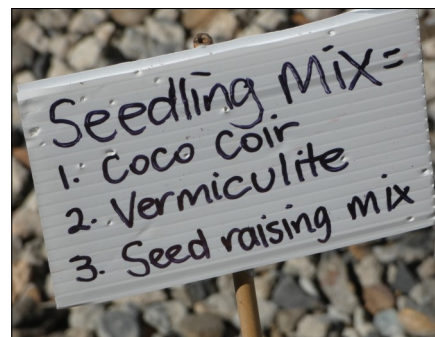 Seedling Mix=
1. Coco Coir
2. Vermiculite
3. Seed raising mix